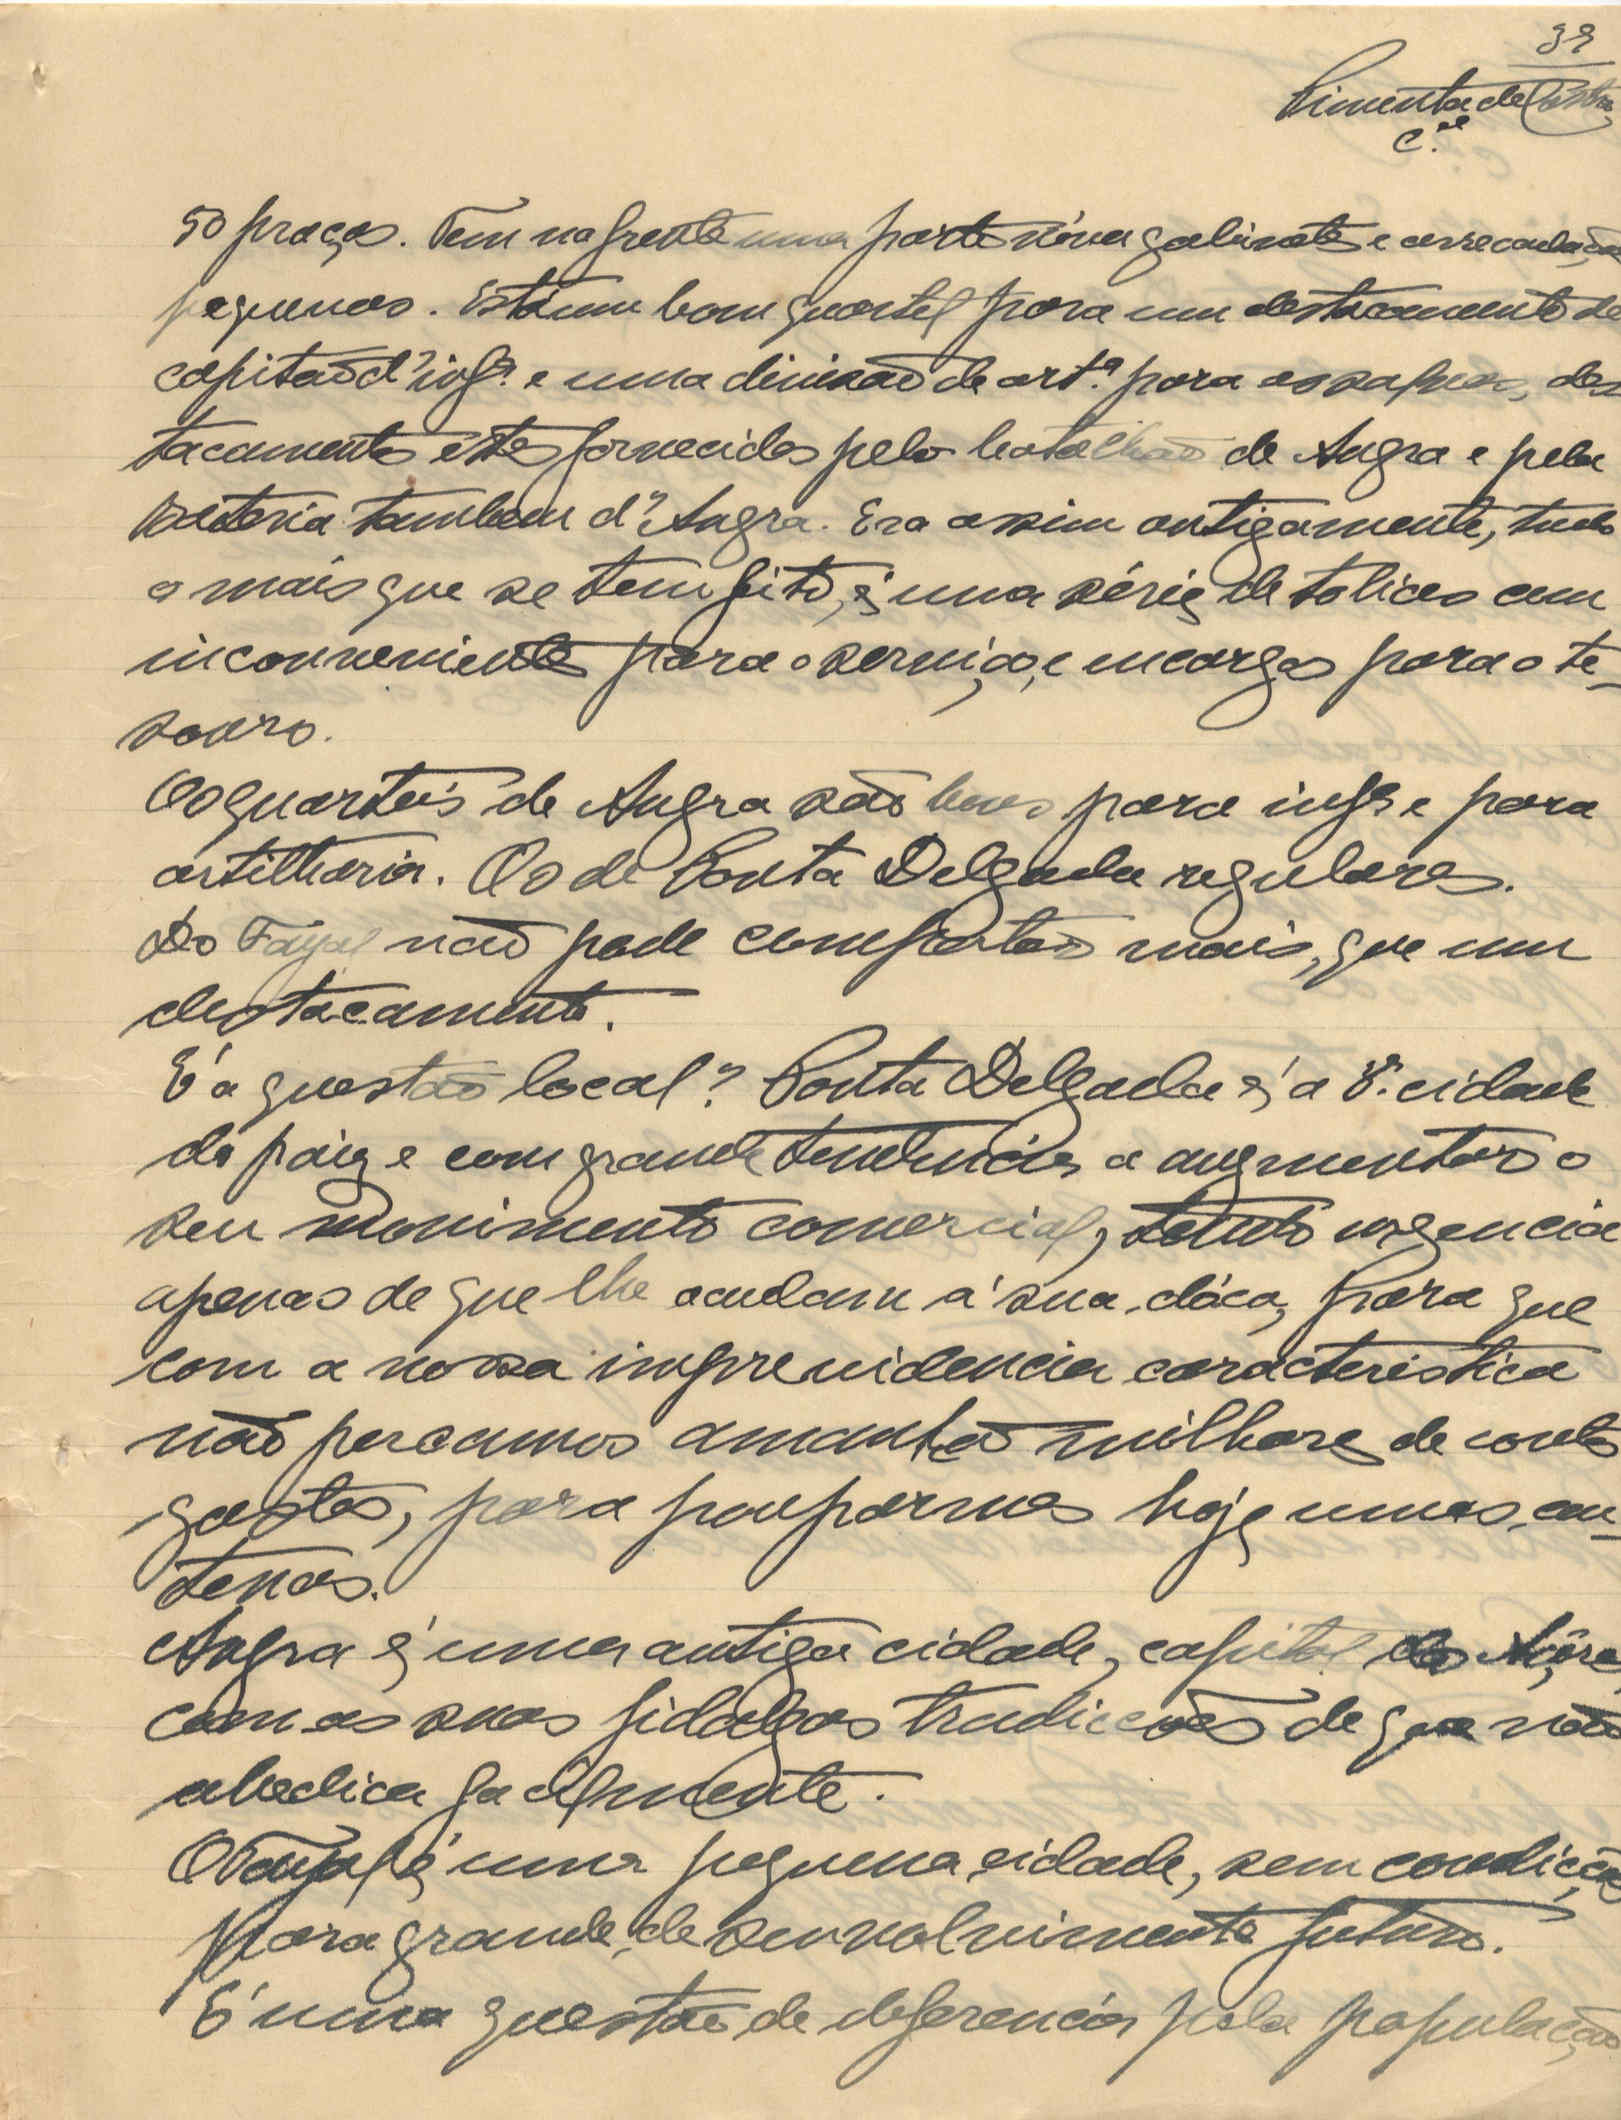 39
Pimenta de Castro
C.el
50 praças. Tem na frente uma parte nóva gabinetes e arrecadações
pequenos. Está um bom quartel para um destacamento de
capitão d'inf.ª e uma divisão de art.ª para as salvas, des
tacamentos éstes fornecidos pelo batalhão de Angra e pela
bateria tambem d'Angra. Era assim antigamente, tudo
o mais que se tem feito, é uma série de tolices com
inconvenientes para o serviço, e encargos para o te-
souro.
Os quarteis de Angra são bons para inf.ª e para
artilharia. Os de Ponta Delgada regulares.
Do Fayal não pode comportar mais, que um
destacamento.
É a questão local? Ponta Delgada é a 3.ª cidade
do páiz e com grande tendencia a augmentar o
seu movimento comercial, tendo urgencia
apenas de que lhe acudam á sua dóca, para que
com a nossa imprevidencia caracteristica
não percamos amanhã milhares de contos
gastos, para pouparmos hoje umas cen-
tenas.
Angra é uma antiga cidade, capital dos Açôres,
com as suas fidalgas tradicções de que não
abedica facilmente.
O Fayal é uma pequena cidade, sem condicções
para grande desenvolvimento futuro.
É uma questão de deferencia pela população